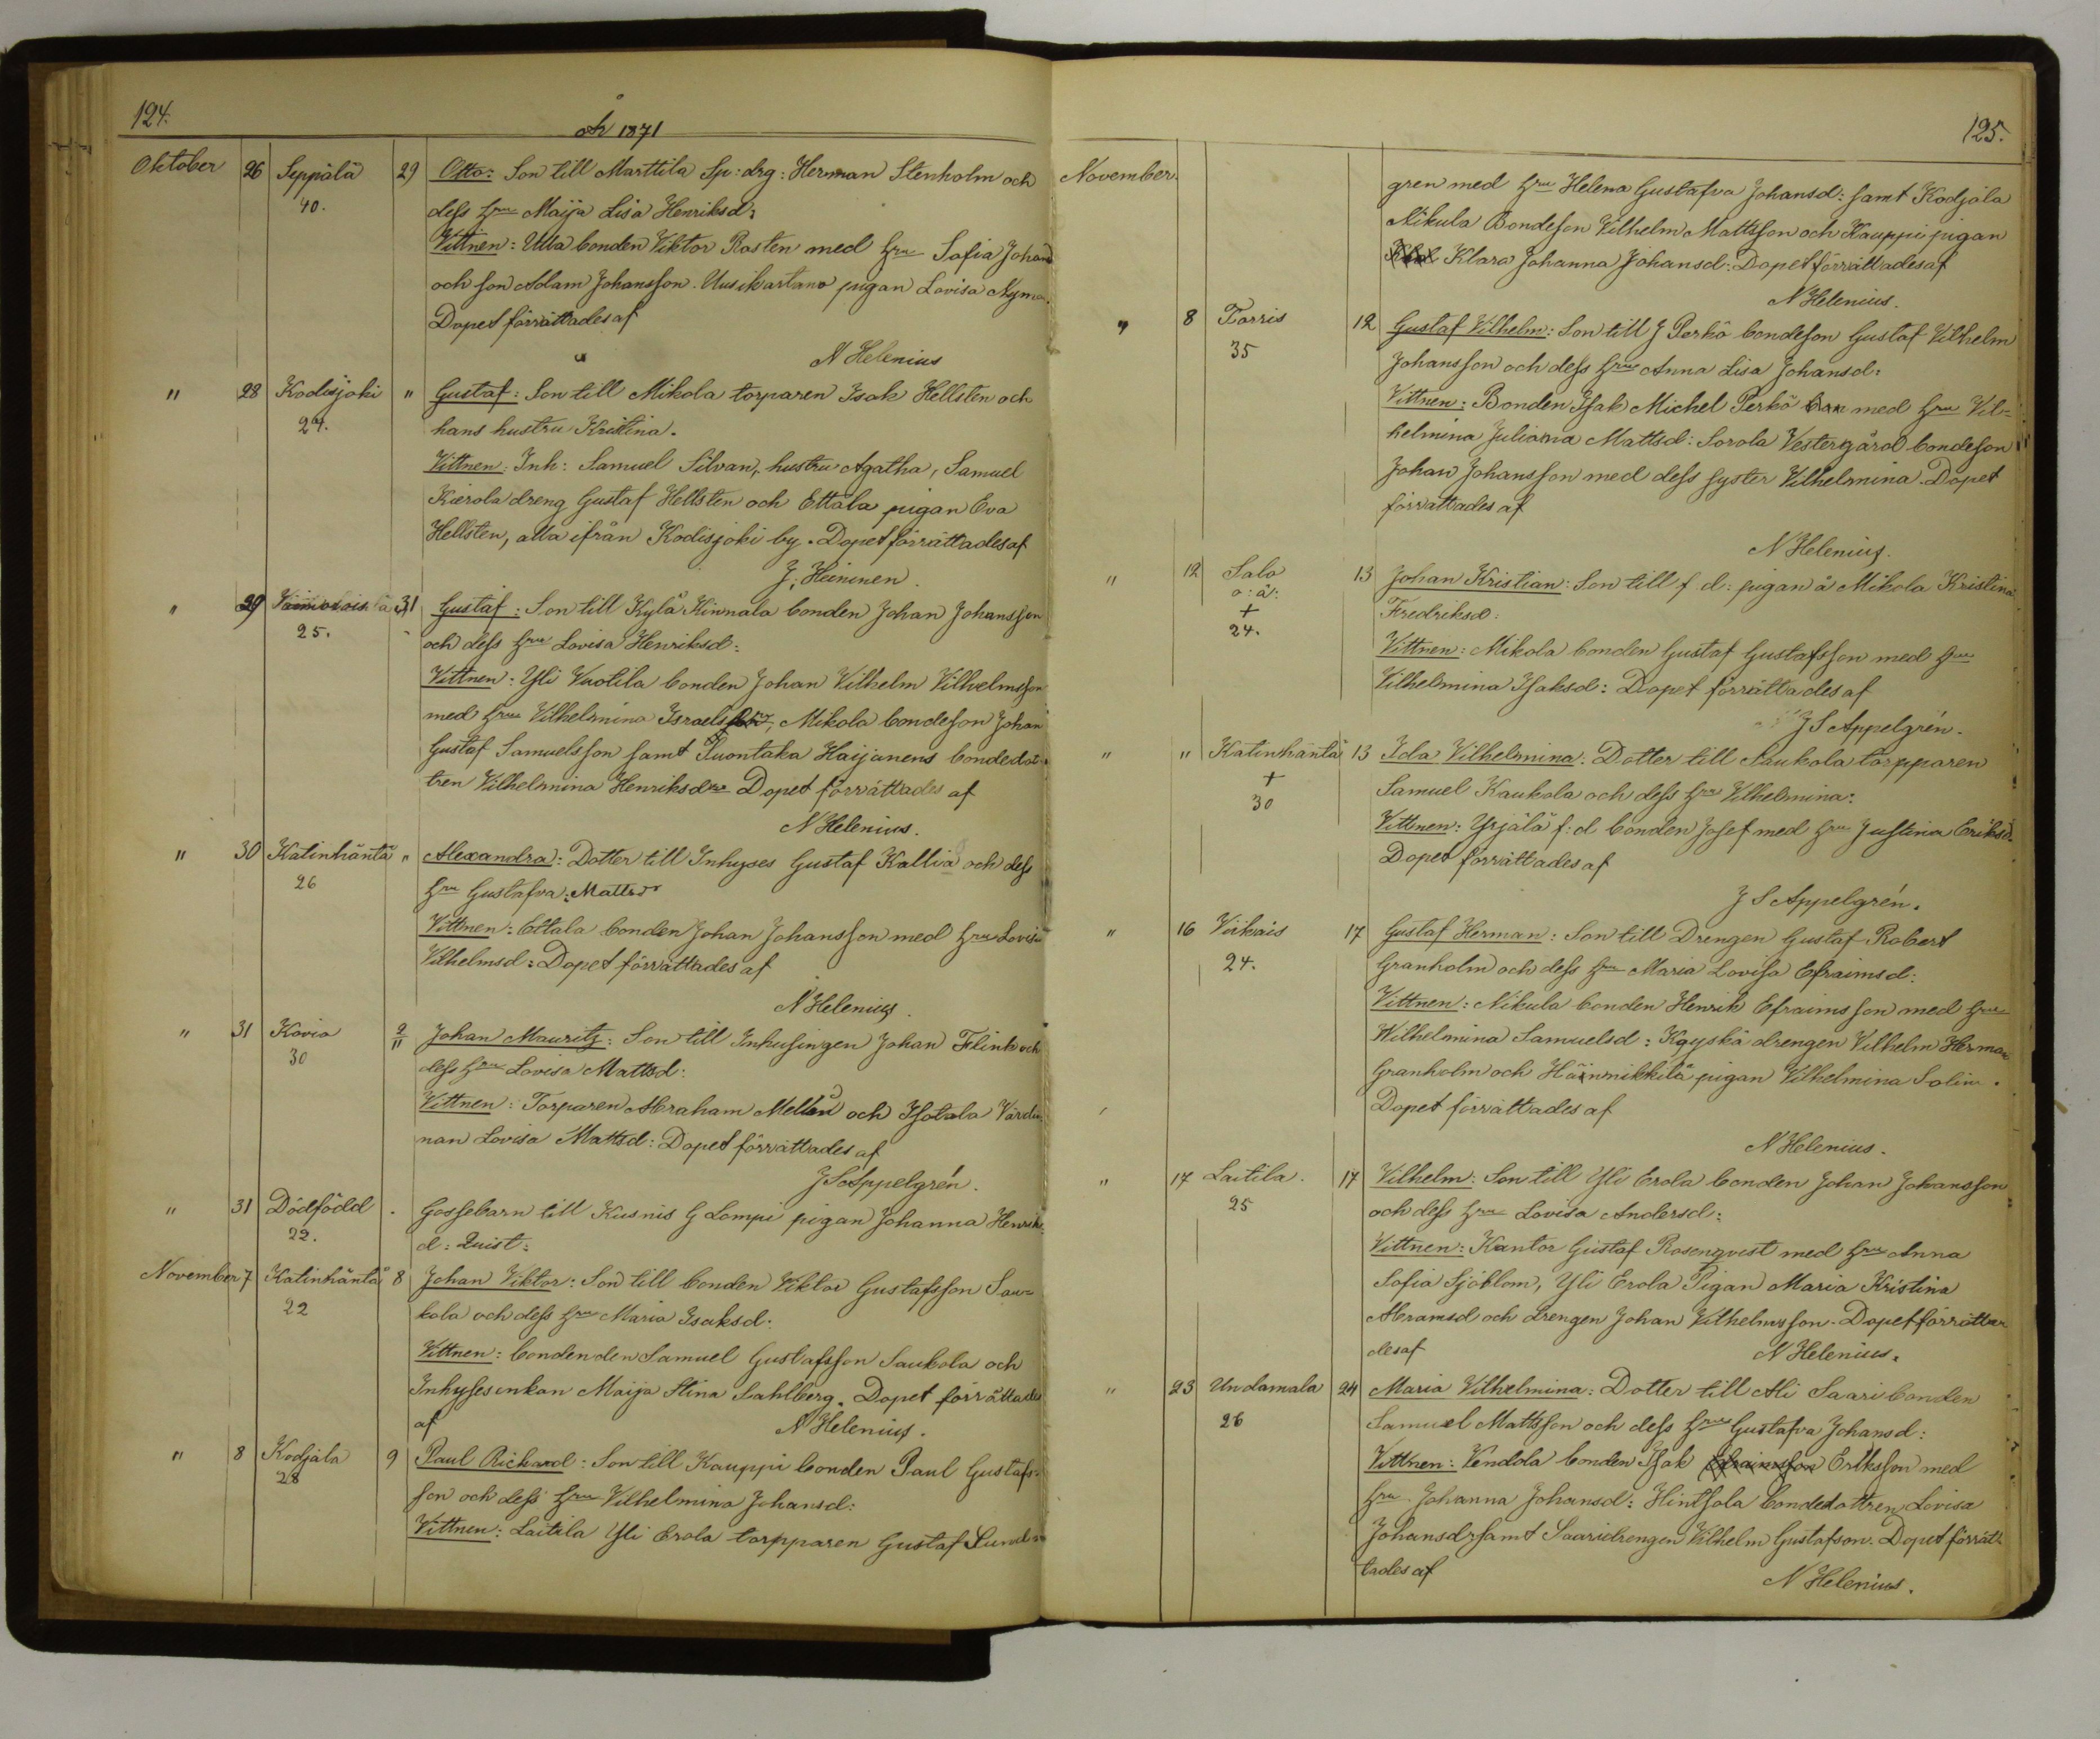 124.
År 1871
Oktober 26 Seppälä 29 Otto: Son till Marttila Sp: drg: Herman Stenholm och
40. dess hru Maija Lisa Henriksd:
Vittnen: Ulla bonden Viktor Rosten med hru Sofia Johansd
och son Adam Johansson. Uusikartano pigan Lovisa Nyman.
Dopet förrättades af
N Helenius
" 28 Kodisjoki " Gustaf: Son till Mikola torparen Isak Hellsten och
24. hans hustru Kristina.
Vittnen: Inh: Samuel Silvan, hustru Agatha, Samuel
Kierola dreng Gustaf Hellsten och Ettala pigan Eva
Hellsten, alla ifrån Kodisjoki by. Dopet förrättades af
J. Heininen.
" 29 31 Gustaf: Son till Kylä Kinnala bonden Johan Johansson
25. och dess hru Lovisa Henriksd:
Vittnen: Yli Vuotila bonden Johan Vilhelm Vilhelmsson
med hru Vilhelmina Israels, Mikola bondeson Johan
Gustaf Samuelsson samt Suontaka Haijanens bondedot
tren Vilhelmina Henriksdr Dopet förrättades af
N Helenius.
" 30 Katinhäntä " Alexandra: Dotter till Inhyses Gustaf Kallia och dess
26 hru Gustafva Mattsdr
Vittnen: Ettala bonden Johan Johansson med hru Lovisa
Vilhelmsd: Dopet förrättades af
N Helenius.
" 31 Kovio 2/11 Johan Mauritz: Son till Inhysingen Johan Flink och
30 dess hru Lovisa Mattsd:
Vittnen: Torparen Abraham Mellån och Isotala Värdin
nan Lovisa Mattsd: Dopet förrättades af
J S Appelgrén.
" 31 Dödfödd . Gossebarn till Kusnis G Lompi pigan Johanna Henriks
22. d: Quist:
November 7 Katinhäntä 8 Johan Viktor: Son till bonden Viktor Gustafsson Sau-
22 kola och dess hru Maria Isaksd:
Vittnen: bondenden Samuel Gustafsson Saukola och
Inhysesenkan Maija Stina Sahlberg. Dopet förrättades
af N Helenius.
" 8 Kodjala 9 Paul Richard: Son till Kauppi bonden Paul Gustafs-
28 son och dess hru Vilhelmina Johansd:
Vittnen: Laitila Yli Erola torpparen Gustaf Lund
125.
November. gren med hru Helena Gustafva Johansd: samt Kodjala
Nikula Bondeson Vilhelm Mattsson och Kauppi pigan
Klara Johanna Johansd: Dopet förrättades af
N Helenius.
" 8 Torris 12 Gustaf Vilhelm: Son till J Perkö bondeson Gustaf Vilhelm
35 Johansson och dess hru Anna Lisa Johansd:
Vittnen: Bonden Isak Michel Perkö med hru Vil-
helmina Juliana Mattsd: Sorola Vestergård bondeson
Johan Johansson med dess syster Vilhelmina. Dopet
förrättades af
N Helenius.
" 12 Salo 13 Johan Kristian: Son till f d: pigan å Mikola Kristina
o: ä: Fredriksd:
+
24. Vittnen: Mikola bonden Gustaf Gustafsson med hru
Vilhelmina Isaksd: Dopet förrättades af
J S Appelgrén.
" " Katinhäntä 13 Ida Vilhelmina: Dotter till Saukola torpparen
+ Samuel Kaukola och dess hru Vilhelmina:
30 Vittnen: Yrjälä f: d bonden Josef med hru Justina Eriksd.
Dopet förrättades af
J S Appelgrén.
" 16 Viikais 17 Gustaf Herman: Son till Drengen Gustaf Robert
24. Granholm och dess hru Maria Lovisa Efraimsd:
Vittnen: Nikula bonden Henrik Efraimsson med hru
Wilhelmina Samuelsd: drengen Vilhelm Herman
Granholm och pigan Vilhelmina Solin.
Dopet förrättades af
N Helenius.
" 17 Laitila. 17 Vilhelm: Son till Yli Erola bonden Johan Johansson
25 och dess hru Lovisa Andersd:
Vittnen: Kantor Gustaf Rosenqvist med hru Anna
Sofia Sjöblom, Yli Erola Pigan Maria Kristina
Abramsd och drengen Johan Vilhelmsson. Dopet förrätta
des af N Helenius.
" 23 Undamala 24 Maria Vilhelmina: Dotter till Ali Saari bonden
26 Samuel Mattsson och dess hru Gustafva Johansd:
Vittnen: Vendola bonden Isak Efraimsson Eriksson med
hru Johanna Johansd: Hintsala bondedottren Lovisa
Johansdr samt Saaridrengen Vilhelm Gustafson. Dopet förrät-
tades af N Helenius.